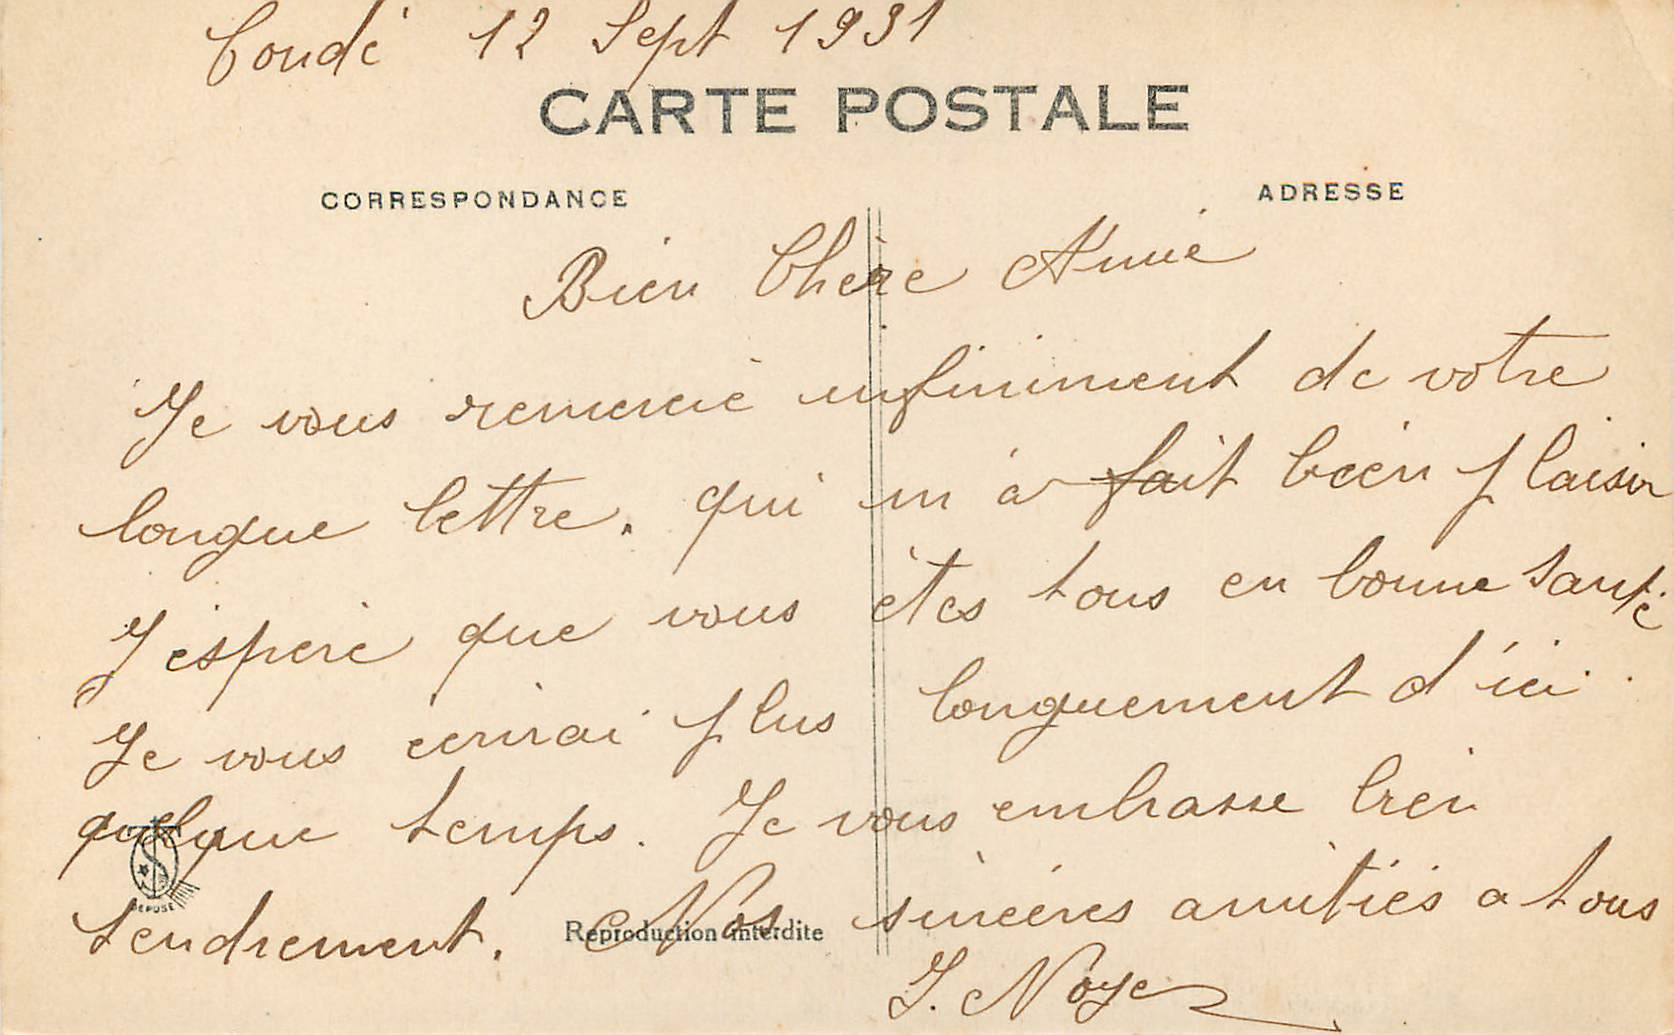 Condé 12 Sept 1931
CARTE POSTALE
CORRESPONDANCE
ADRESSE
Bien Chère Amie
Je vous remercie infiniment de votre
longue lettre. qui m'a fait bien plaisir
J'espère que vous êtes tous en bonne santé
Je vous ecrirai plus longuement d'ici
quelque temps. Je vous embrasse bien
tendrement. Nos sincères amitiés a tous
DEPOSÉ
Reproduction interdite
J. Noye